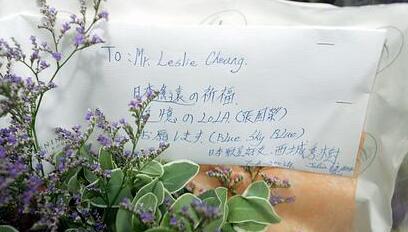 To: Mr. Leslie Cheung.
日本 永遠の祈福.
憶のLOLA (張國榮)
お願します (Blue Sky Blue)
日本歌星好友 西城秀樹